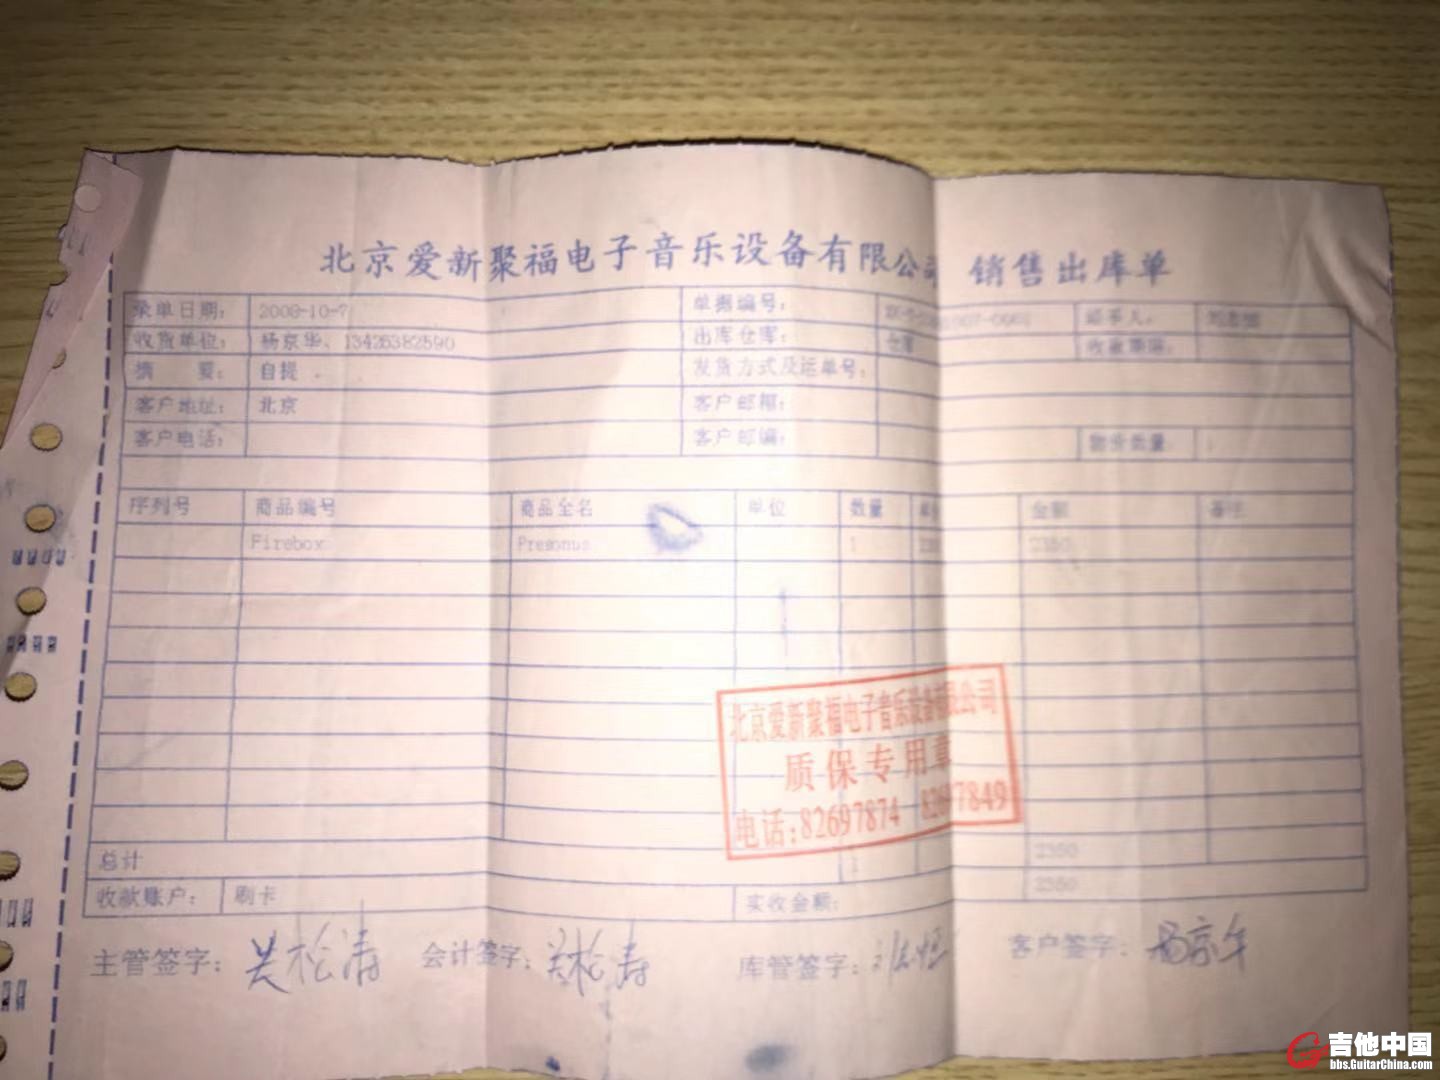 北京爱新聚福电子音乐设备有限公司 销售出库单
录单日期: 2008-10-7 单据编号:
收货单位: 杨京华、13426382590 出库仓库: 仓库
摘 要: 自提 发货方式及运单号:
客户地址: 北京 客户邮箱:
客户电话: 客户邮编:
序列号 商品编号 商品全名 单位 数量 金额 备注
Firebox Presonus 1 2350
北京爱新聚福电子音乐设备有限公司
质保专用章
电话:82697874 82697849
总计 1 2350
收款账户: 刷卡 实收金额: 2350
主管签字: 会计签字: 库管签字: 客户签字:
吉他中国
bbs.GuitarChina.com